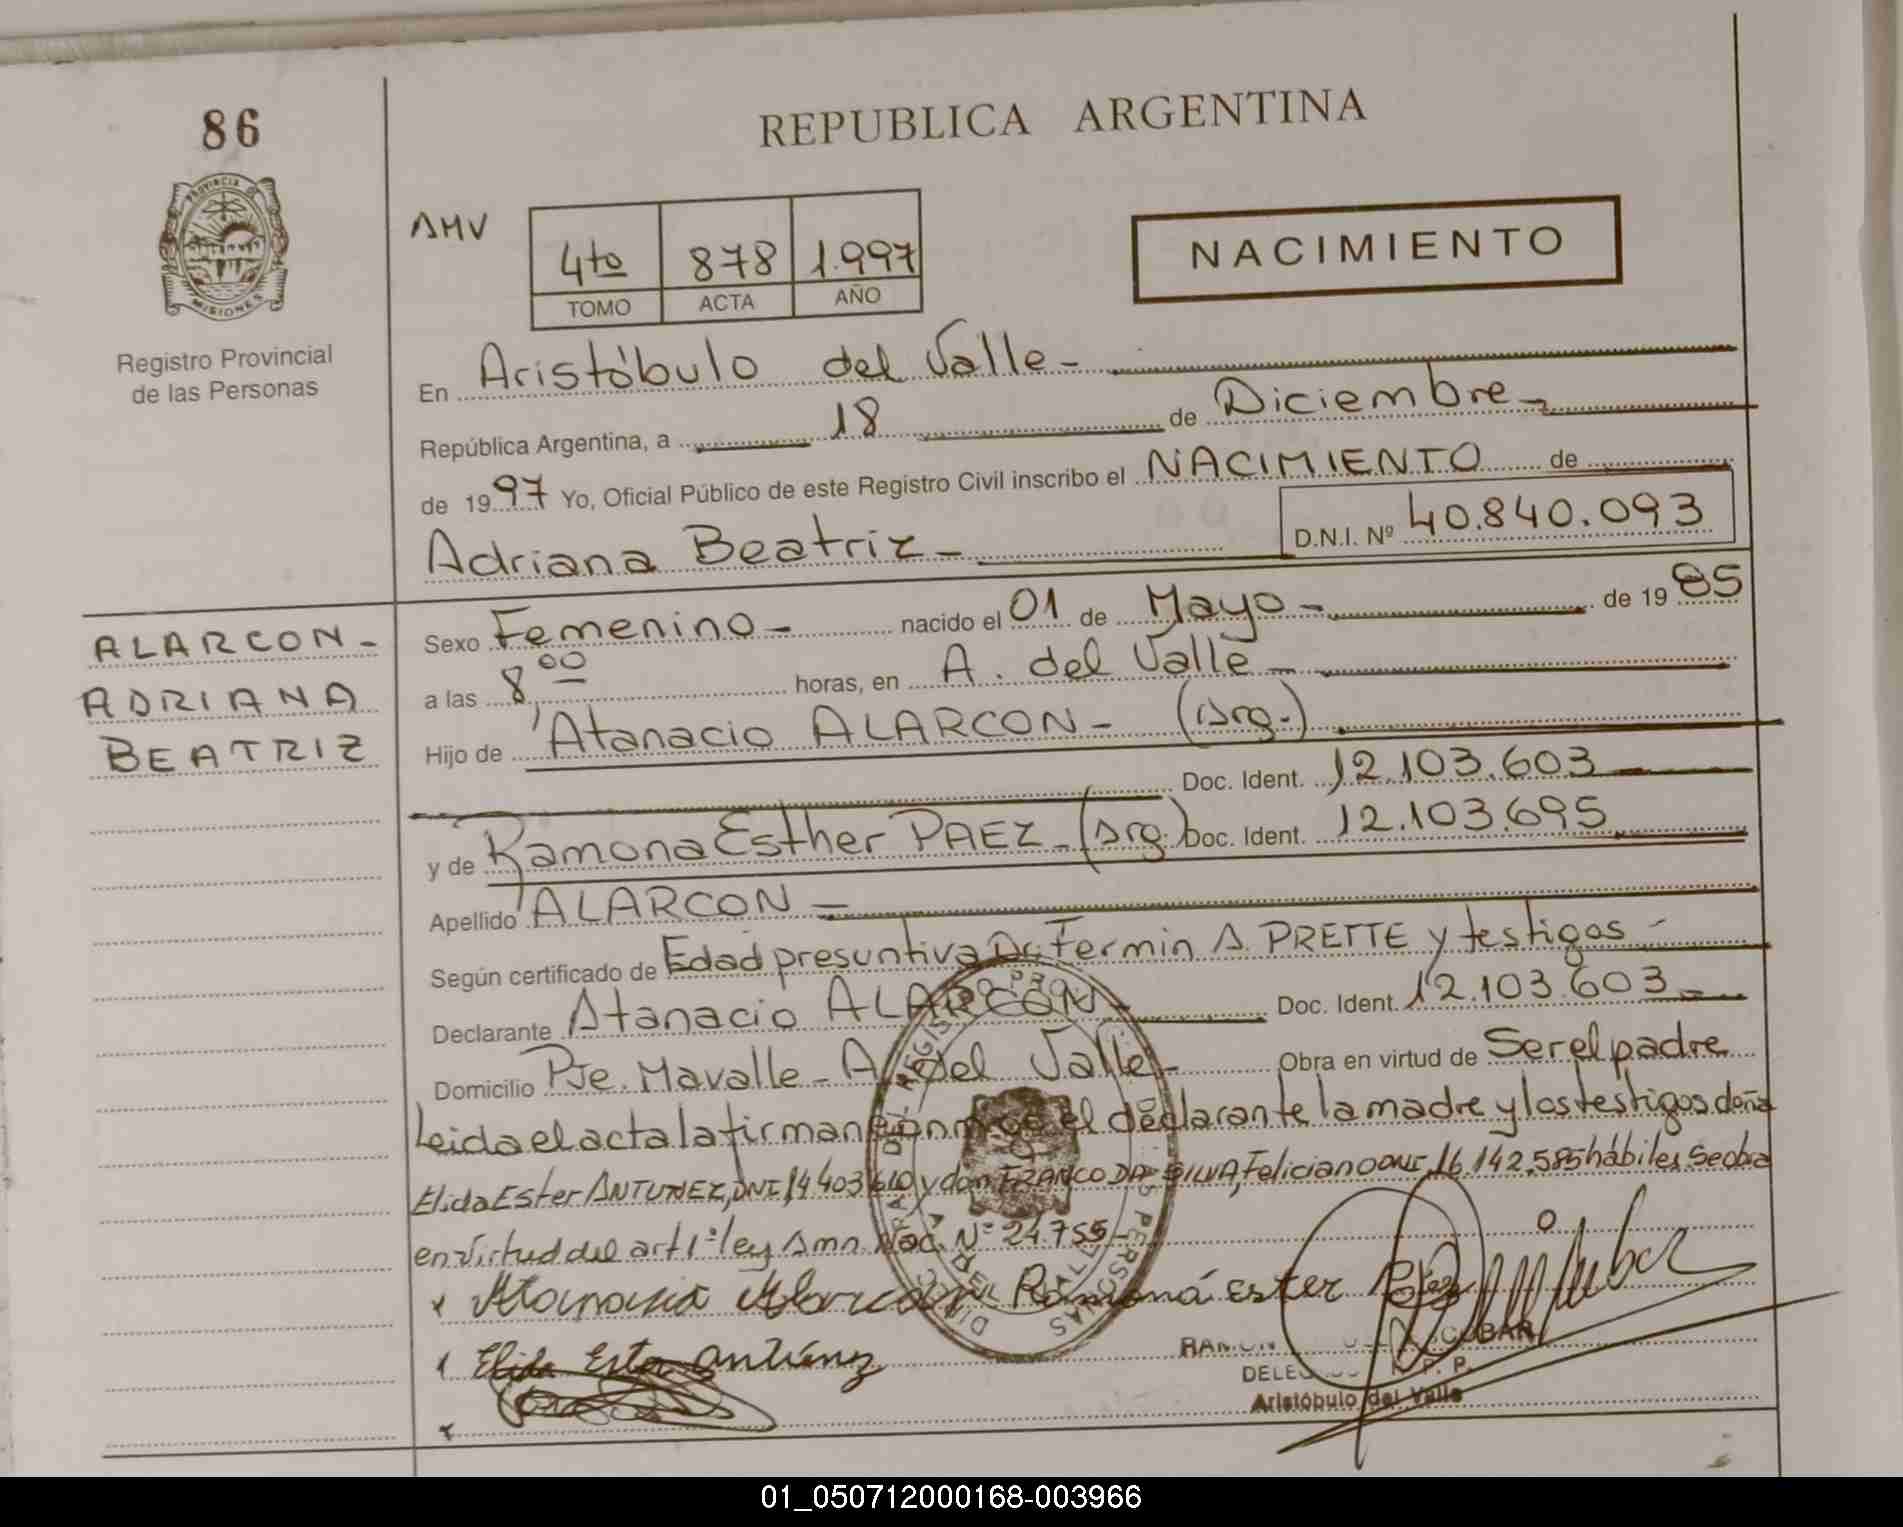 86
PROVINCIA DE
MISIONES
Registro Provincial
de las Personas
REPUBLICA ARGENTINA
AMV
4to 878 1.997
TOMO ACTA AÑO
NACIMIENTO
En Aristóbulo del Valle-
República Argentina, a 18 de Diciembre-
de 1997 Yo, Oficial Público de este Registro Civil inscribo el NACIMIENTO de
Adriana Beatriz- D.N.I. Nº 40.840.093
ALARCON-
ADRIANA
BEATRIZ
Sexo Femenino- nacido el 01 de Mayo- de 1985
a las 8,00 horas, en A. del Valle-
Hijo de Atanacio ALARCON- (Arg.)
Doc. Ident. 12.103.603
y de Ramona Esther PAEZ- (Arg.) Doc. Ident. 12.103.695
Apellido ALARCON-
Según certificado de Edad presuntiva Dr. Fermin A. PRETTE y testigos-
Declarante Atanacio ALARCON- Doc. Ident. 12.103.603-
Domicilio Pje. Mavalle-A. del Valle- Obra en virtud de Ser el padre
Leida el acta la firman conmigo el declarante la madre y los testigos doña
Elida Ester ANTUNEZ, DNI, 14.403.610 y don FRANCO DA SILVA, Feliciano DNI, 16.142.585 hábiles Se obra
en virtud del art 1º ley Amn. Nac. Nº 24.755-
Atanacio Alarcon Ramona Ester Paez
Elida Ester Antunez
ESCOBAR
R. P. P.
Aristóbulo del Valle
01_050712000168-003966